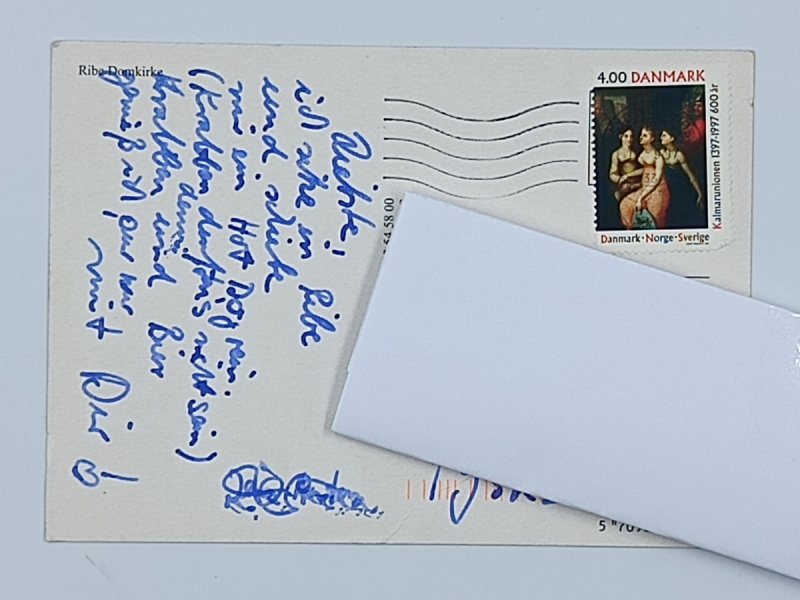 Ribe Domkirke
Liebste,
ich sitze in Ribe
und schiebe
mir ein Hot Dog rein.
(Krabben durften's nicht sein)
denn:
Krabben und Bier
genieß ich nur
mit Dir!
4.00 DANMARK
Kalmarunionen 1397-1997 600 år
Danmark · Norge · Sverige
54 58 00